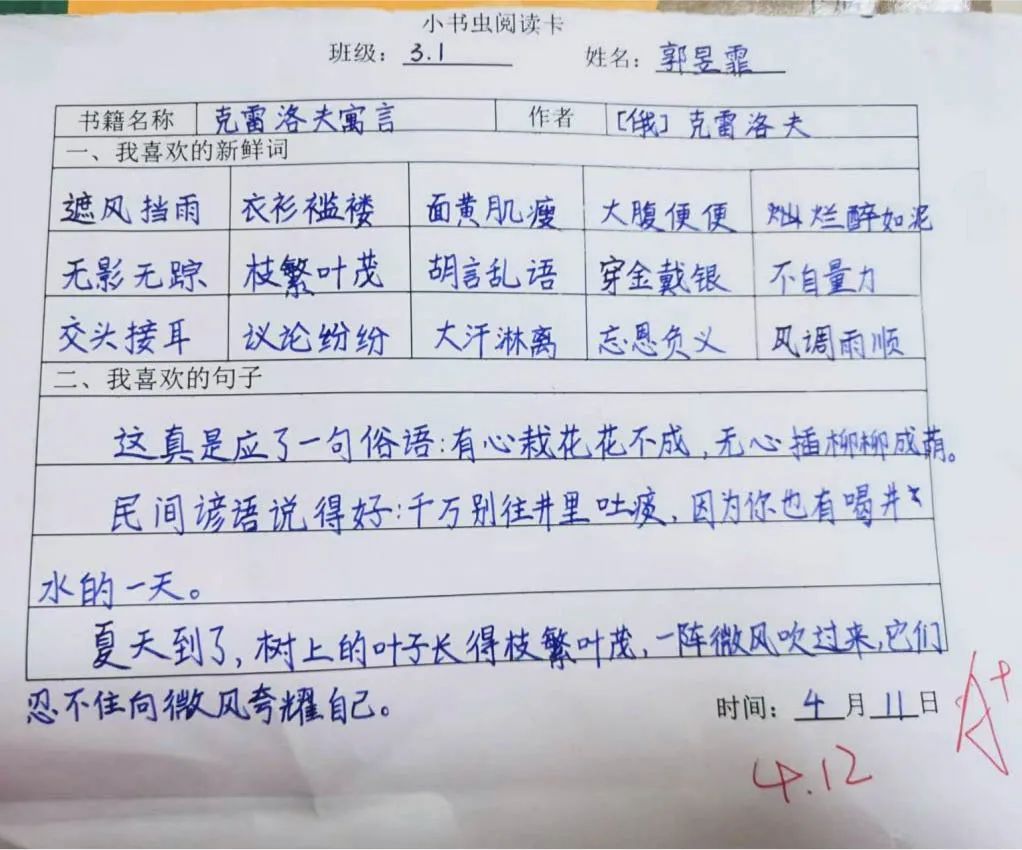 小书虫阅读卡
班级：3.1 姓名：郭昱霏
书籍名称 克雷洛夫寓言 作者 [俄] 克雷洛夫
一、我喜欢的新鲜词
遮风挡雨 衣衫褴褛 面黄肌瘦 大腹便便 烂醉如泥
无影无踪 枝繁叶茂 胡言乱语 穿金戴银 不自量力
交头接耳 议论纷纷 大汗淋离 忘恩负义 风调雨顺
二、我喜欢的句子
这真是应了一句俗语：有心栽花花不成，无心插柳柳成荫。
民间谚语说得好：千万别往井里吐痰，因为你也有喝井
水的一天。
夏天到了，树上的叶子长得枝繁叶茂，一阵微风吹过来，它们
忍不住向微风夸耀自己。
时间：4月11日
A+
4.12